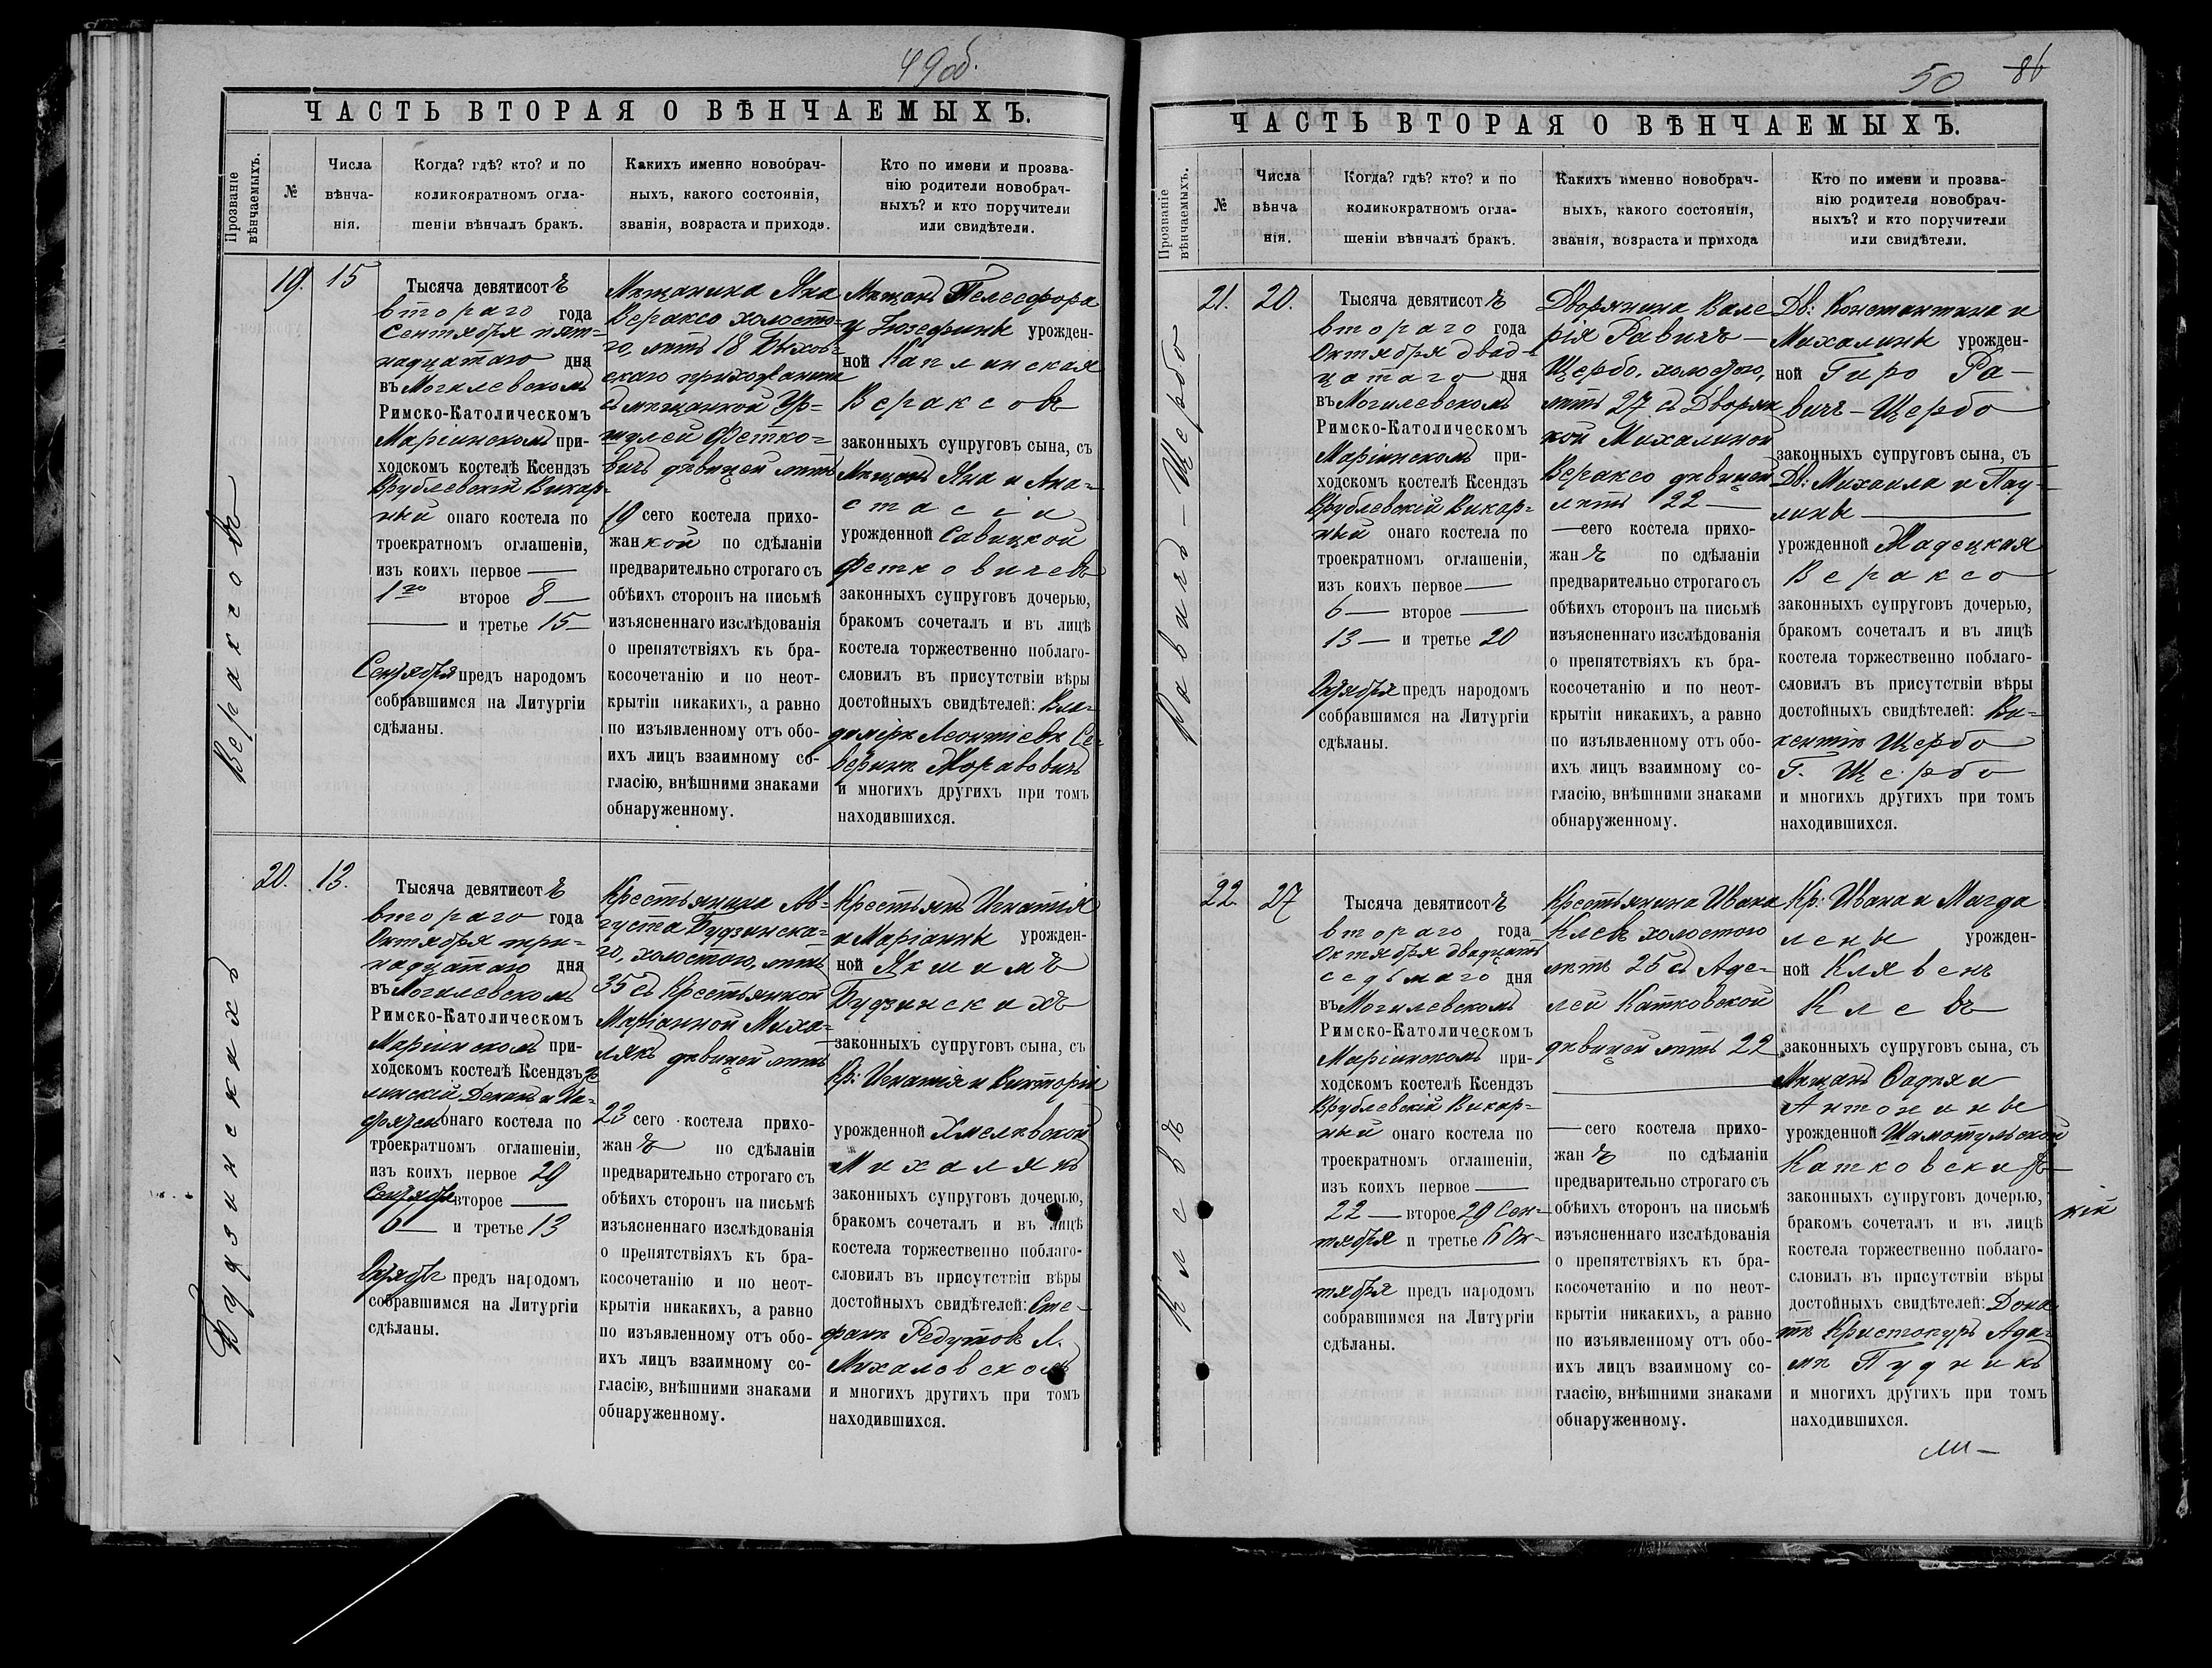 49об.
ЧАСТЬ ВТОРАЯ О ВѢНЧАЕМЫХЪ.
Прозваніе вѣнчаемыхъ.
№
Числа
вѣнча-
нія.
Когда? гдѣ? кто? и по
коликократномъ огла-
шеніи вѣнчалъ бракъ.
Какихъ именно новобрач-
ныхъ, какого состоянія,
званія, возраста и прихода.
Кто по имени и прозва-
нію родители новобрач-
ныхъ? и кто поручители
или свидѣтели.
Вераксовъ
19.
15
Тысяча девятисотъ
второго года
Сентября пят=
надцатаго дня
въ Могилевскомъ
Римско-Католическомъ
Маріинскомъ при-
ходскомъ костелѣ Ксендзъ
Врублевскій Викар=
ный онаго костела по
троекратномъ оглашеніи,
изъ коихъ первое —
1го второе 8 —
— и третье 15 —
Сентября предъ народомъ
собравшимся на Литургіи
сдѣланы.
Мѣщанина Яна
Вераксо холосто=
го, лѣтъ 18 Быхов=
скаго прихожанина
съ мѣщанкой Ур=
шулей Фетко=
вичъ дѣвицей лѣтъ
19 сего костела прихо-
жанкой по сдѣланіи
предварительно строгаго съ
обѣихъ сторонъ на письмѣ
изъясненнаго изслѣдованія
о препятствіяхъ къ бра-
косочетанію и по неот-
крытіи никакихъ, а равно
по изъявленному отъ обо-
ихъ лицъ взаимному со-
гласію, внѣшними знаками
обнаруженному.
Мѣщанъ Телесфора
и Іозефины урожден-
ной Каплинская
Вераксовъ
законныхъ супруговъ сына, съ
Мѣщанъ Яна и Ана=
стасіи
урожденной Савицкой
Фетковичевъ
законныхъ супруговъ дочерью,
бракомъ сочеталъ и въ лицѣ
костела торжественно поблаго-
словилъ въ присутствіи вѣры
достойныхъ свидѣтелей: Вла=
димірѣ Леонтіевѣ Се=
веринѣ Моравовичъ
и многихъ другихъ при томъ
находившихся.
Будзинскихъ
20.
13.
Тысяча девятисотъ
второго года
Октября три=
надцатаго дня
въ Могилевскомъ
Римско-Католическомъ
Маріинскомъ при-
ходскомъ костелѣ Ксендзъ
линскій Деканъ и
онаго костела по
троекратномъ оглашеніи,
изъ коихъ первое 29
Сентября второе —
6 — и третье 13
Октября предъ народомъ
собравшимся на Литургіи
сдѣланы.
Крестьянина Ав=
густа Будзинска=
го, холостого, лѣтъ
35 съ Крестьянкой
Маріанной Миха=
лякъ дѣвицей лѣтъ
23 сего костела прихо-
жанъ по сдѣланіи
предварительно строгаго съ
обѣихъ сторонъ на письмѣ
изъясненнаго изслѣдованія
о препятствіяхъ къ бра-
косочетанію и по неот-
крытіи никакихъ, а равно
по изъявленному отъ обо-
ихъ лицъ взаимному со-
гласію, внѣшними знаками
обнаруженному.
Крестьянъ Игнатія
и Маріанны урожден-
ной Якшимъ
Будзинскихъ
законныхъ супруговъ сына, съ
Кр: Игнатія и Викторіи
урожденной Хмелевской
Михалякъ
законныхъ супруговъ дочерью,
бракомъ сочеталъ и въ лицѣ
костела торжественно поблаго-
словилъ въ присутствіи вѣры
достойныхъ свидѣтелей: Сте-
фанѣ Редутовѣ Л.
Михаловскомъ
и многихъ другихъ при томъ
находившихся.
50 86
ЧАСТЬ ВТОРАЯ О ВѢНЧАЕМЫХЪ.
Прозваніе вѣнчаемыхъ.
№
Числа
вѣнча
нія.
Когда? гдѣ? кто? и по
коликократномъ огла-
шеніи вѣнчалъ бракъ.
Какихъ именно новобрач-
ныхъ, какого состоянія,
званія, возраста и прихода
Кто по имени и прозва-
нію родители новобрач-
ныхъ? и кто поручители
или свидѣтели.
Равичъ-Щербо
21.
20.
Тысяча девятисотъ
второго года
Октября двад=
цатаго дня
въ Могилевскомъ
Римско-Католическомъ
Маріинскомъ при-
ходскомъ костелѣ Ксендзъ
Врублевскій Викар=
ный онаго костела по
троекратномъ оглашеніи,
изъ коихъ первое —
6 — второе —
13 — и третье 20
Октября предъ народомъ
собравшимся на Литургіи
сдѣланы.
Дворянина Вале
рія Равичъ —
Щербо, холостого,
лѣтъ 27 съ Дворян
кой Михалиной
Вераксо дѣвицей
лѣтъ 22 —
— сего костела прихо-
жанъ по сдѣланіи
предварительно строгаго съ
обѣихъ сторонъ на письмѣ
изъясненнаго изслѣдованія
о препятствіяхъ къ бра-
косочетанію и по неот-
крытіи никакихъ, а равно
по изъявленному отъ обо-
ихъ лицъ взаимному со-
гласію, внѣшними знаками
обнаруженному.
Дв: Константина и
Михалины урожден-
ной Гиро Ра-
вичъ-Щербо
законныхъ супруговъ сына, съ
Дв: Михаила и Пау-
лины —
урожденной Жадецкая
Вераксо
законныхъ супруговъ дочерью,
бракомъ сочеталъ и въ лицѣ
костела торжественно поблаго-
словилъ въ присутствіи вѣры
достойныхъ свидѣтелей: Ви=
кентіѣ Щербо
Г. Щербо
и многихъ другихъ при томъ
находившихся.
Клевъ
22.
27
Тысяча девятисотъ
второго года
Октября двадцать
седьмаго дня
въ Могилевскомъ
Римско-Католическомъ
Маріинскомъ при-
ходскомъ костелѣ Ксендзъ
Врублевскій Викар=
ный онаго костела по
троекратномъ оглашеніи,
изъ коихъ первое —
22 — второе 29 Сен-
тября и третье 6 Ок-
тября предъ народомъ
собравшимся на Литургіи
сдѣланы.
Крестьянина Ивана
Клевъ холостого
лѣтъ 25 съ Аде-
лей Катковской
дѣвицей лѣтъ 22
— сего костела прихо-
жанъ по сдѣланіи
предварительно строгаго съ
обѣихъ сторонъ на письмѣ
изъясненнаго изслѣдованія
о препятствіяхъ къ бра-
косочетанію и по неот-
крытіи никакихъ, а равно
по изъявленному отъ обо-
ихъ лицъ взаимному со-
гласію, внѣшними знаками
обнаруженному.
Кр: Ивана и Магда
лены урожден-
ной Клявенъ
Клевъ
законныхъ супруговъ сына, съ
Мѣщанъ Фадѣя и
Антонины
урожденной Шамотульской
Катковскихъ
законныхъ супруговъ дочерью,
бракомъ сочеталъ и въ лицѣ
костела торжественно поблаго-
словилъ въ присутствіи вѣры
достойныхъ свидѣтелей: Дона
тѣ Кристопуръ Ада-
мѣ Пудникъ
и многихъ другихъ при томъ
находившихся.